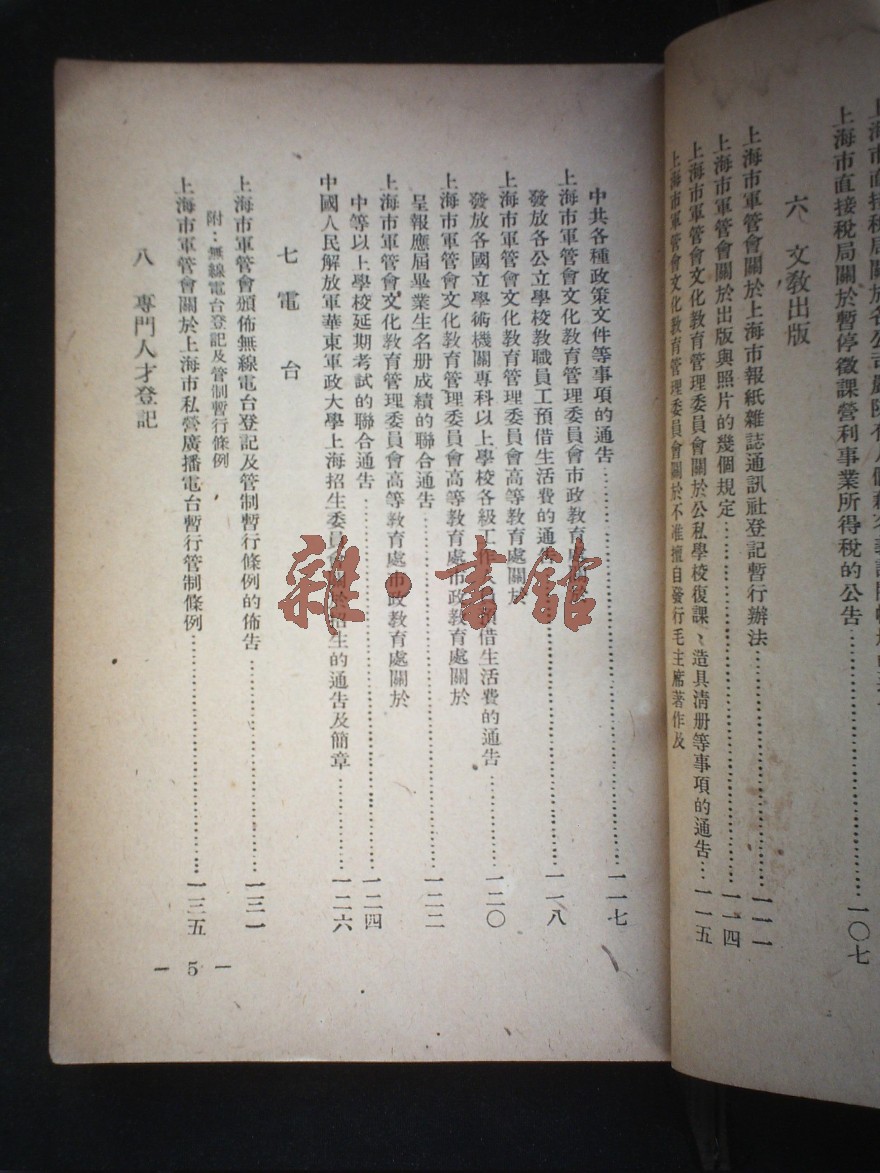 上海市直接稅局關於暫停徵課營利事業所得稅的公告……一〇七
六、文敎出版
上海市軍管會關於上海市報紙雜誌通訊社登記暫行辦法……一一一
上海市軍管會關於出版與照片的幾個規定……一一四
上海市軍管會文化敎育管理委員會關於公私學校復課、造具清册等事項的通告……一一五
上海市軍管會文化敎育管理委員會關於不准擅自發行毛主席著作及
中共各種政策文件等事項的通告……一一七
上海市軍管會文化敎育管理委員會市政敎育處關於
發放各公立學校敎職員工預借生活費的通告……一一八
上海市軍管會文化敎育管理委員會高等敎育處關於
發放各國立學術機關專科以上學校各級工作人員預借生活費的通告……一二〇
上海市軍管會文化敎育管理委員會高等敎育處市政敎育處關於
呈報應屆畢業生名册成績的聯合通告……一二二
上海市軍管會文化敎育管理委員會高等敎育處市政敎育處關於
中等以上學校延期考試的聯合通告……一二四
中國人民解放軍華東軍政大學上海招生委員會關於招生的通告及簡章……一二六
七 電 台
上海市軍管會頒佈無線電台登記及管制暫行條例的佈告……一三一
附：無線電台登記及管制暫行條例
上海市軍管會關於上海市私營廣播電台暫行管制條例……一三五
八 專門人才登記
— 5 —
雜·書館